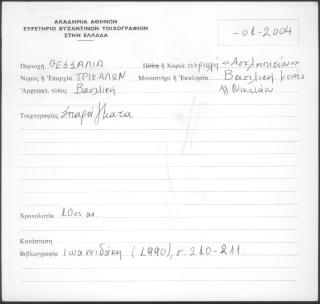 ΑΚΑΔΗΜΙΑ ΑΘΗΝΩΝ
ΕΥΡΕΤΗΡΙΟ ΒΥΖΑΝΤΙΝΩΝ ΤΟΙΧΟΓΡΑΦΙΩΝ
ΣΤΗΝ ΕΛΛΑΔΑ
-01-2004
Περιοχή ΘΕΣΣΑΛΙΑ Πόλη ή Χωριό περιοχή «Ασκληπιείου»
Νομός ή Ἐπαρχία ΤΡΙΚΑΛΩΝ Μοναστήρι ή Ἐκκλησία Βασιλική μονής
Ἀρχιτεκτ. τύπος Βασιλική Αγ. Νικολάου
Τοιχογραφίες Σπαράγματα
Χρονολογία 10ος αι.
Κατάσταση
Βιβλιογραφία Ιωαννιδάκη (1990), σ. 210-211.